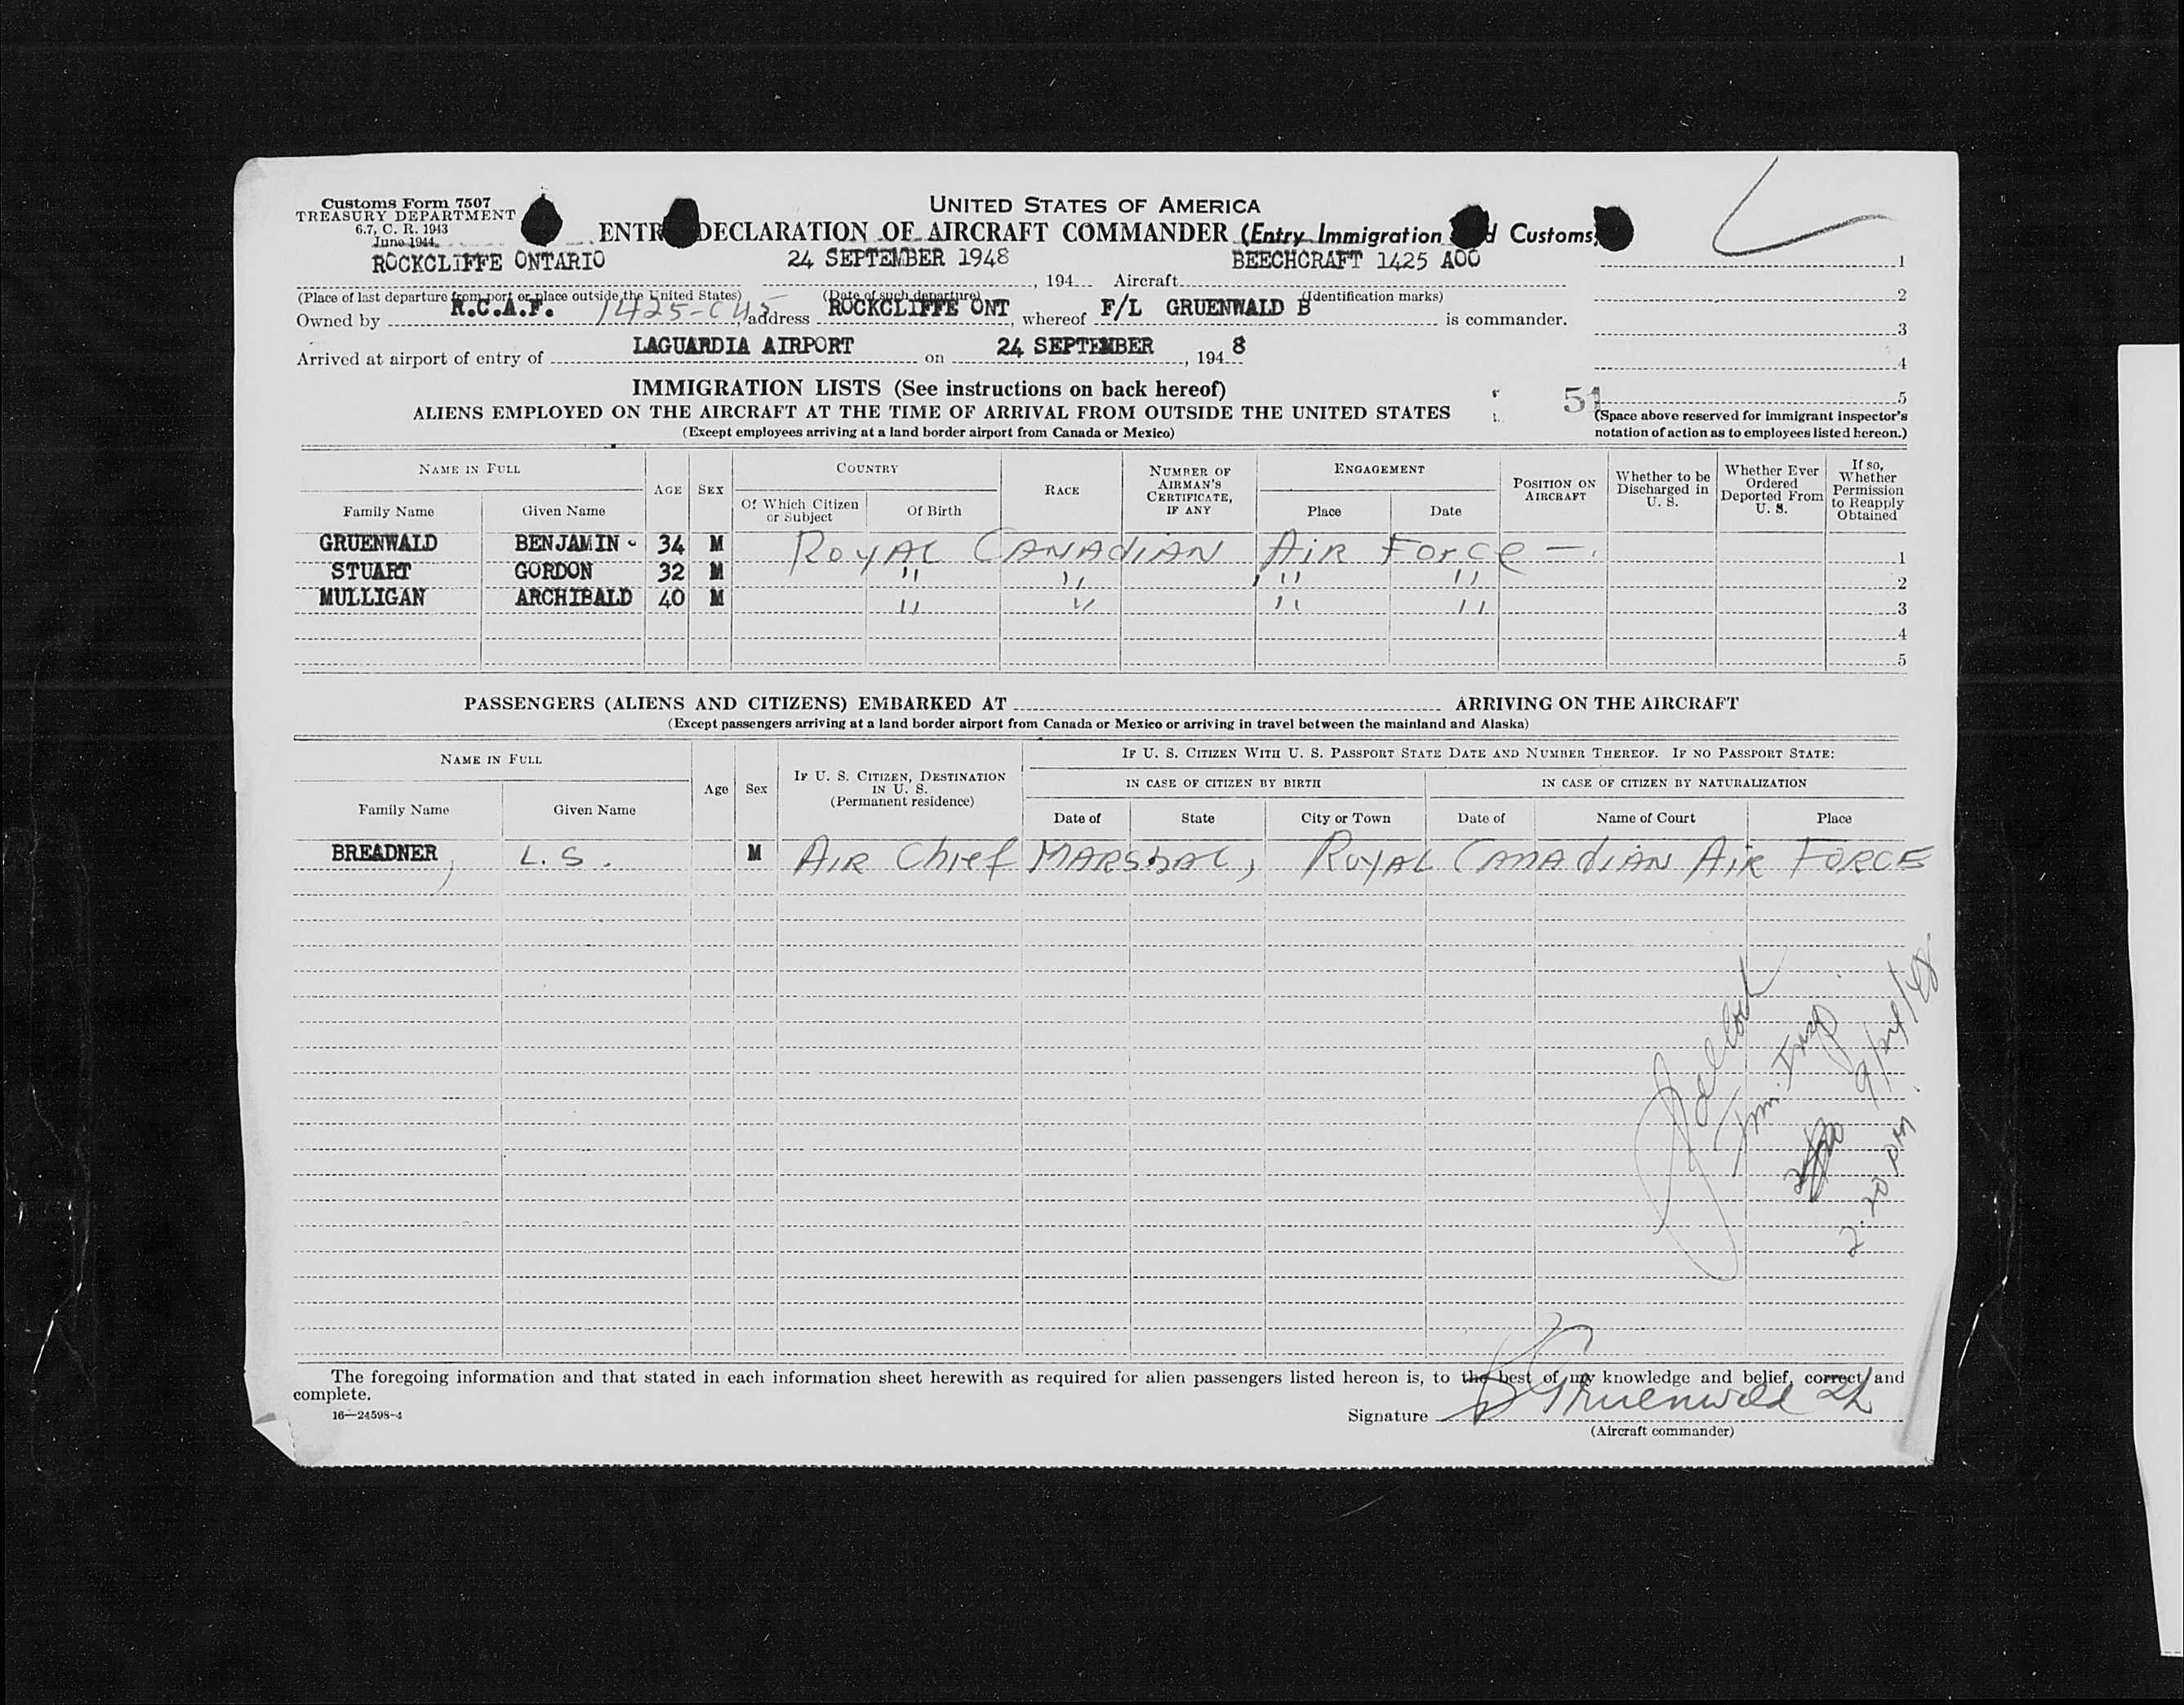 Customs Form 7507
TREASURY DEPARTMENT
6.7, C. R. 1943
June 1944
UNITED STATES OF AMERICA
ENTR DECLARATION OF AIRCRAFT COMMANDER (Entry Immigration d Customs)
ROCKCLIFFE ONTARIO 24 SEPTEMBER 1948 BEECHCRAFT 1425 AOO
, 194 Aircraft 1
(Place of last departure from port or place outside the United States) (Date of such departure) (Identification marks) 2
Owned by R.C.A.F. 1425-C45, address ROCKCLIFFE ONT, whereof F/L GRUENWALD B is commander.
3
Arrived at airport of entry of LAGUARDIA AIRPORT on 24 SEPTEMBER, 1948
4
IMMIGRATION LISTS (See instructions on back hereof) 51 5
ALIENS EMPLOYED ON THE AIRCRAFT AT THE TIME OF ARRIVAL FROM OUTSIDE THE UNITED STATES
(Except employees arriving at a land border airport from Canada or Mexico)
(Space above reserved for immigrant inspector's
notation of action as to employees listed hereon.)
NAME IN FULL AGE SEX COUNTRY RACE NUMBER OF AIRMAN'S CERTIFICATE, IF ANY ENGAGEMENT POSITION ON AIRCRAFT Whether to be Discharged in U. S. Whether Ever Ordered Deported From U. S. If so, Whether Permission to Reapply Obtained
Family Name Given Name Of Which Citizen or Subject Of Birth Place Date
GRUENWALD BENJAMIN 34 M ROYAL CANADIAN AIR FORCE 1
STUART GORDON 32 M " " " " 2
MULLIGAN ARCHIBALD 40 M " " " " 3
4
5
PASSENGERS (ALIENS AND CITIZENS) EMBARKED AT ARRIVING ON THE AIRCRAFT
(Except passengers arriving at a land border airport from Canada or Mexico or arriving in travel between the mainland and Alaska)
NAME IN FULL Age Sex IF U. S. CITIZEN, DESTINATION IN U. S. (Permanent residence) IF U. S. CITIZEN WITH U. S. PASSPORT STATE DATE AND NUMBER THEREOF. IF NO PASSPORT STATE:
IN CASE OF CITIZEN BY BIRTH IN CASE OF CITIZEN BY NATURALIZATION
Family Name Given Name Date of State City or Town Date of Name of Court Place
BREADNER, L. S. M AIR Chief MARSHAL, ROYAL CANADIAN AIR FORCE
Imm. Insp
9/24/48
2.20 PM
The foregoing information and that stated in each information sheet herewith as required for alien passengers listed hereon is, to the best of my knowledge and belief, correct and
complete.
16—24598-4
Signature B Gruenwald
(Aircraft commander)